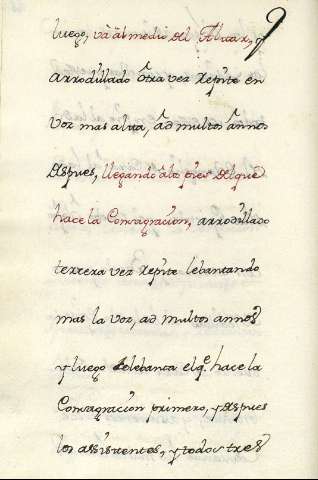 9
luego, vâ âl medio del Altar, y
arrodillado ôtra vez repite en
voz mas alta, âd multos ânnos
despues, llegando â los pies del que
hace la Consagraciôn, arrodillado
tercera vez repite lebantando
mas la voz, ad multos annos
y luego se lebanta el qe. hace la
Consagraciôn primero, y despues
los assistentes, y todos tres